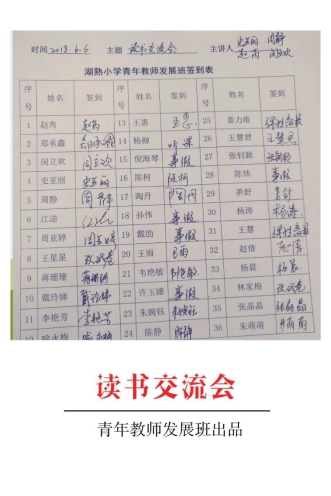 时间 2018.6.6 主题 读书交流会 主讲人 史亚丽 周静
赵芮 闵立欢
湖熟小学青年教师发展班签到表
序号 姓名 签到 序号 姓名 签到 序号 姓名 签到
1 赵芮 赵芮 13 王惠 王惠 25 姜力维
2 郑承鑫 14 杨柳 听课 26 王慧君 王慧君
3 闵立欢 闵立欢 15 倪海琴 事假 27 张钊颖
4 史亚丽 史亚丽 16 陈柯 陈柯 28 陈炜 事假
5 周静 周静 17 陶丹 陶丹 29 姜舒 姜舒
6 江洁 18 孙伟 事假 30 杨涛 杨涛
7 周亚婷 周亚婷 19 戴劢 事假 31 王慧
8 王星星 20 王雨 王雨 32 赵倩 赵倩
9 蒋珊珊 蒋珊珊 21 韦艳敏 韦艳敏 33 杨晨 杨晨
10 戴玲娣 戴玲娣 22 许玉姗 事假 34 林家梅
11 李艳芳 李艳芳 23 朱婉钰 朱婉钰 35 张晶晶 张晶晶
12 喻永梅 24 陈静 陈静 36 朱萌萌 朱萌萌
读书交流会
青年教师发展班出品